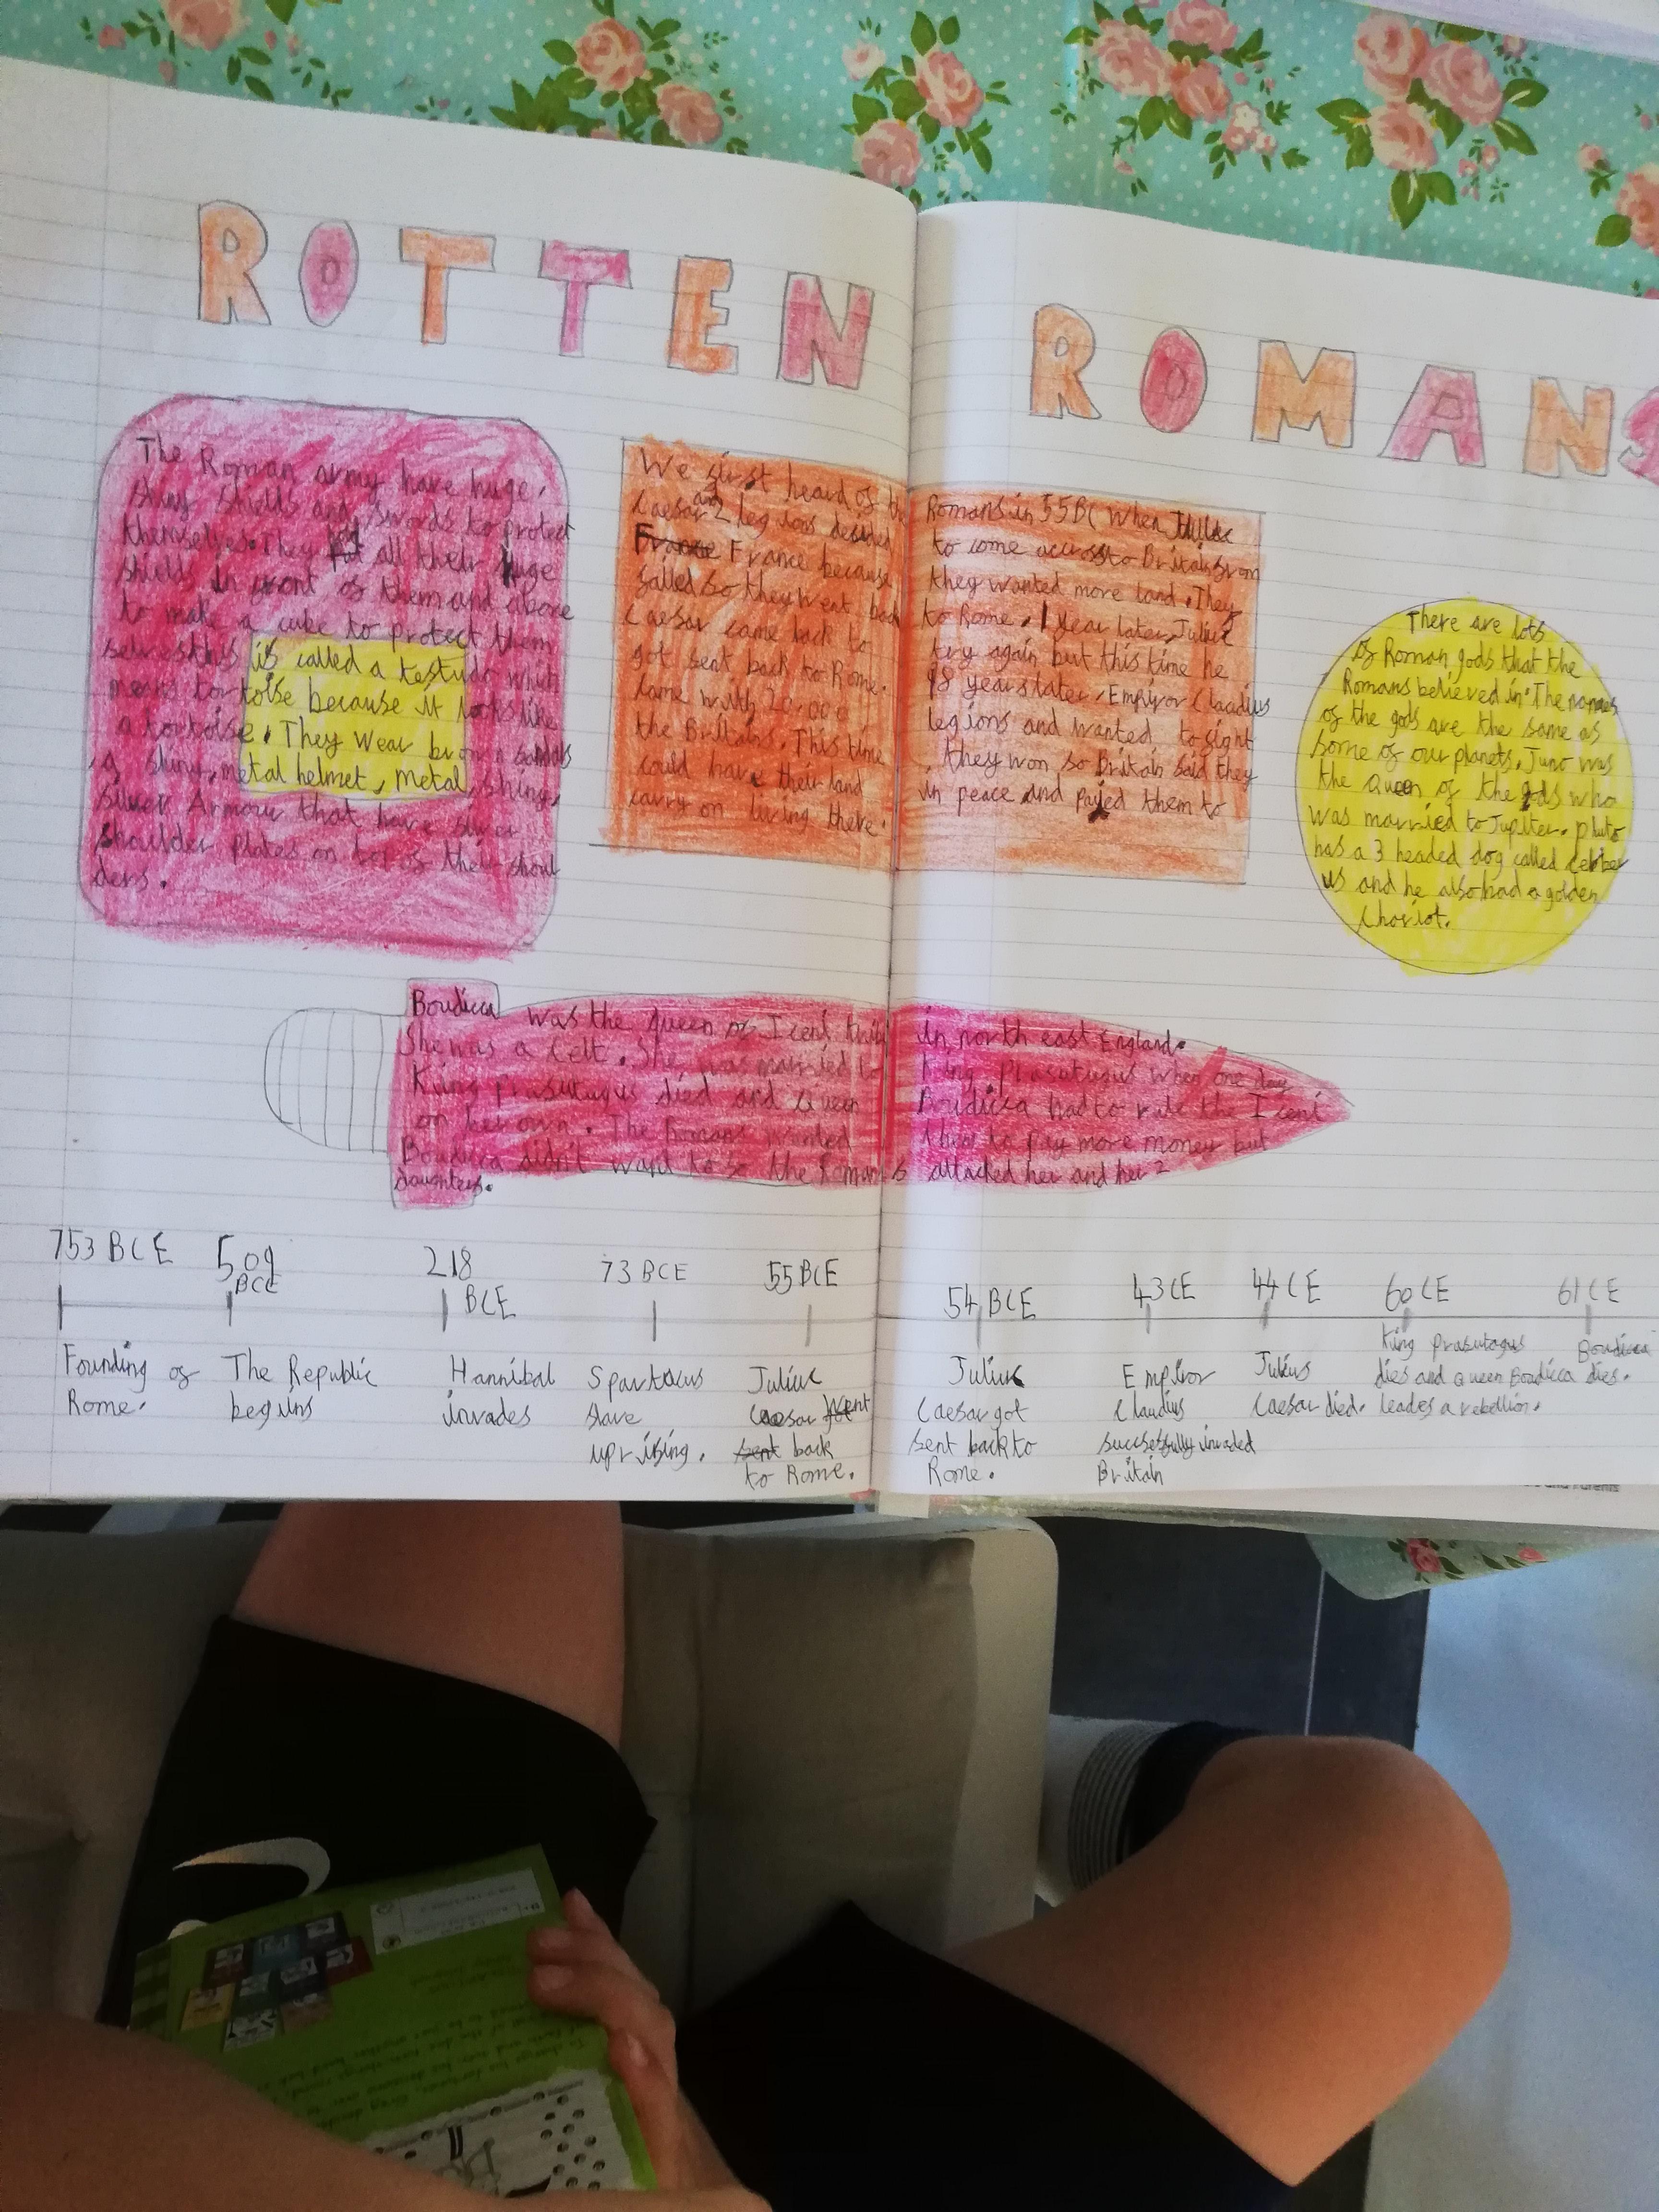 ROTTEN ROMANS
The Roman army have huge,
shiny shields and swords to protect
themselves. They put all their huge
shields in front of them and above
to make a cube to protect them
selves this is called a testudo which
means tortoise because it looks like
a tortoise. They wear brown sandals
, a shiny, metal helmet, metal, shiny,
silver Armour that have silver
shoulder plates on top of their shoul
ders.
We first heard of the Romans in 55BC when Julius
Caesar and 2 legions decided to come accross to Britain from
France France because they wanted more land. They
failed so they went back to Rome. 1 year later, Julius
Caesar came back to try again but this time he
got sent back to Rome. 98 years later, Empiror Claudius
came with 20,000 legions and wanted to fight
the Britains. This time, they won so Britain said they
could have their land in peace and payed them to
carry on living there.
There are lots
of Roman gods that the
Romans believed in. The names
of the gods are the same as
some of our planets. Juno was
the Queen of the gods who
was married to Jupiter. Pluto
has a 3 headed dog called Cerber
us and he also had a golden
Choriot.
Boudicca was the queen of Iceni tribe in north east England.
She was a Celt. She was married to King Prasutugus when one day
King Prasutugus died and Queen Boudicca had to rule the Iceni
on her own. The Romans wanted them to pay more money but
Boudicca didn't want to so the Romans attacked her and her 2
daughters.
753 BCE 509 BCE 218 BCE 73 BCE 55 BCE 54 BCE 43 CE 44 CE 60 CE 61 CE
Founding of
Rome.
The Republic
begins
Hannibal
invades
Spartacus
slave
uprising.
Julius
Caesar got went
sent back
to Rome.
Julius
Caesar got
sent back to
Rome.
Empiror
Claudius
successfully invaded
Britain
Julius
Caesar died.
King Prasutagus
dies and Queen Boudicca
leades a rebellion.
Boudicca
dies.